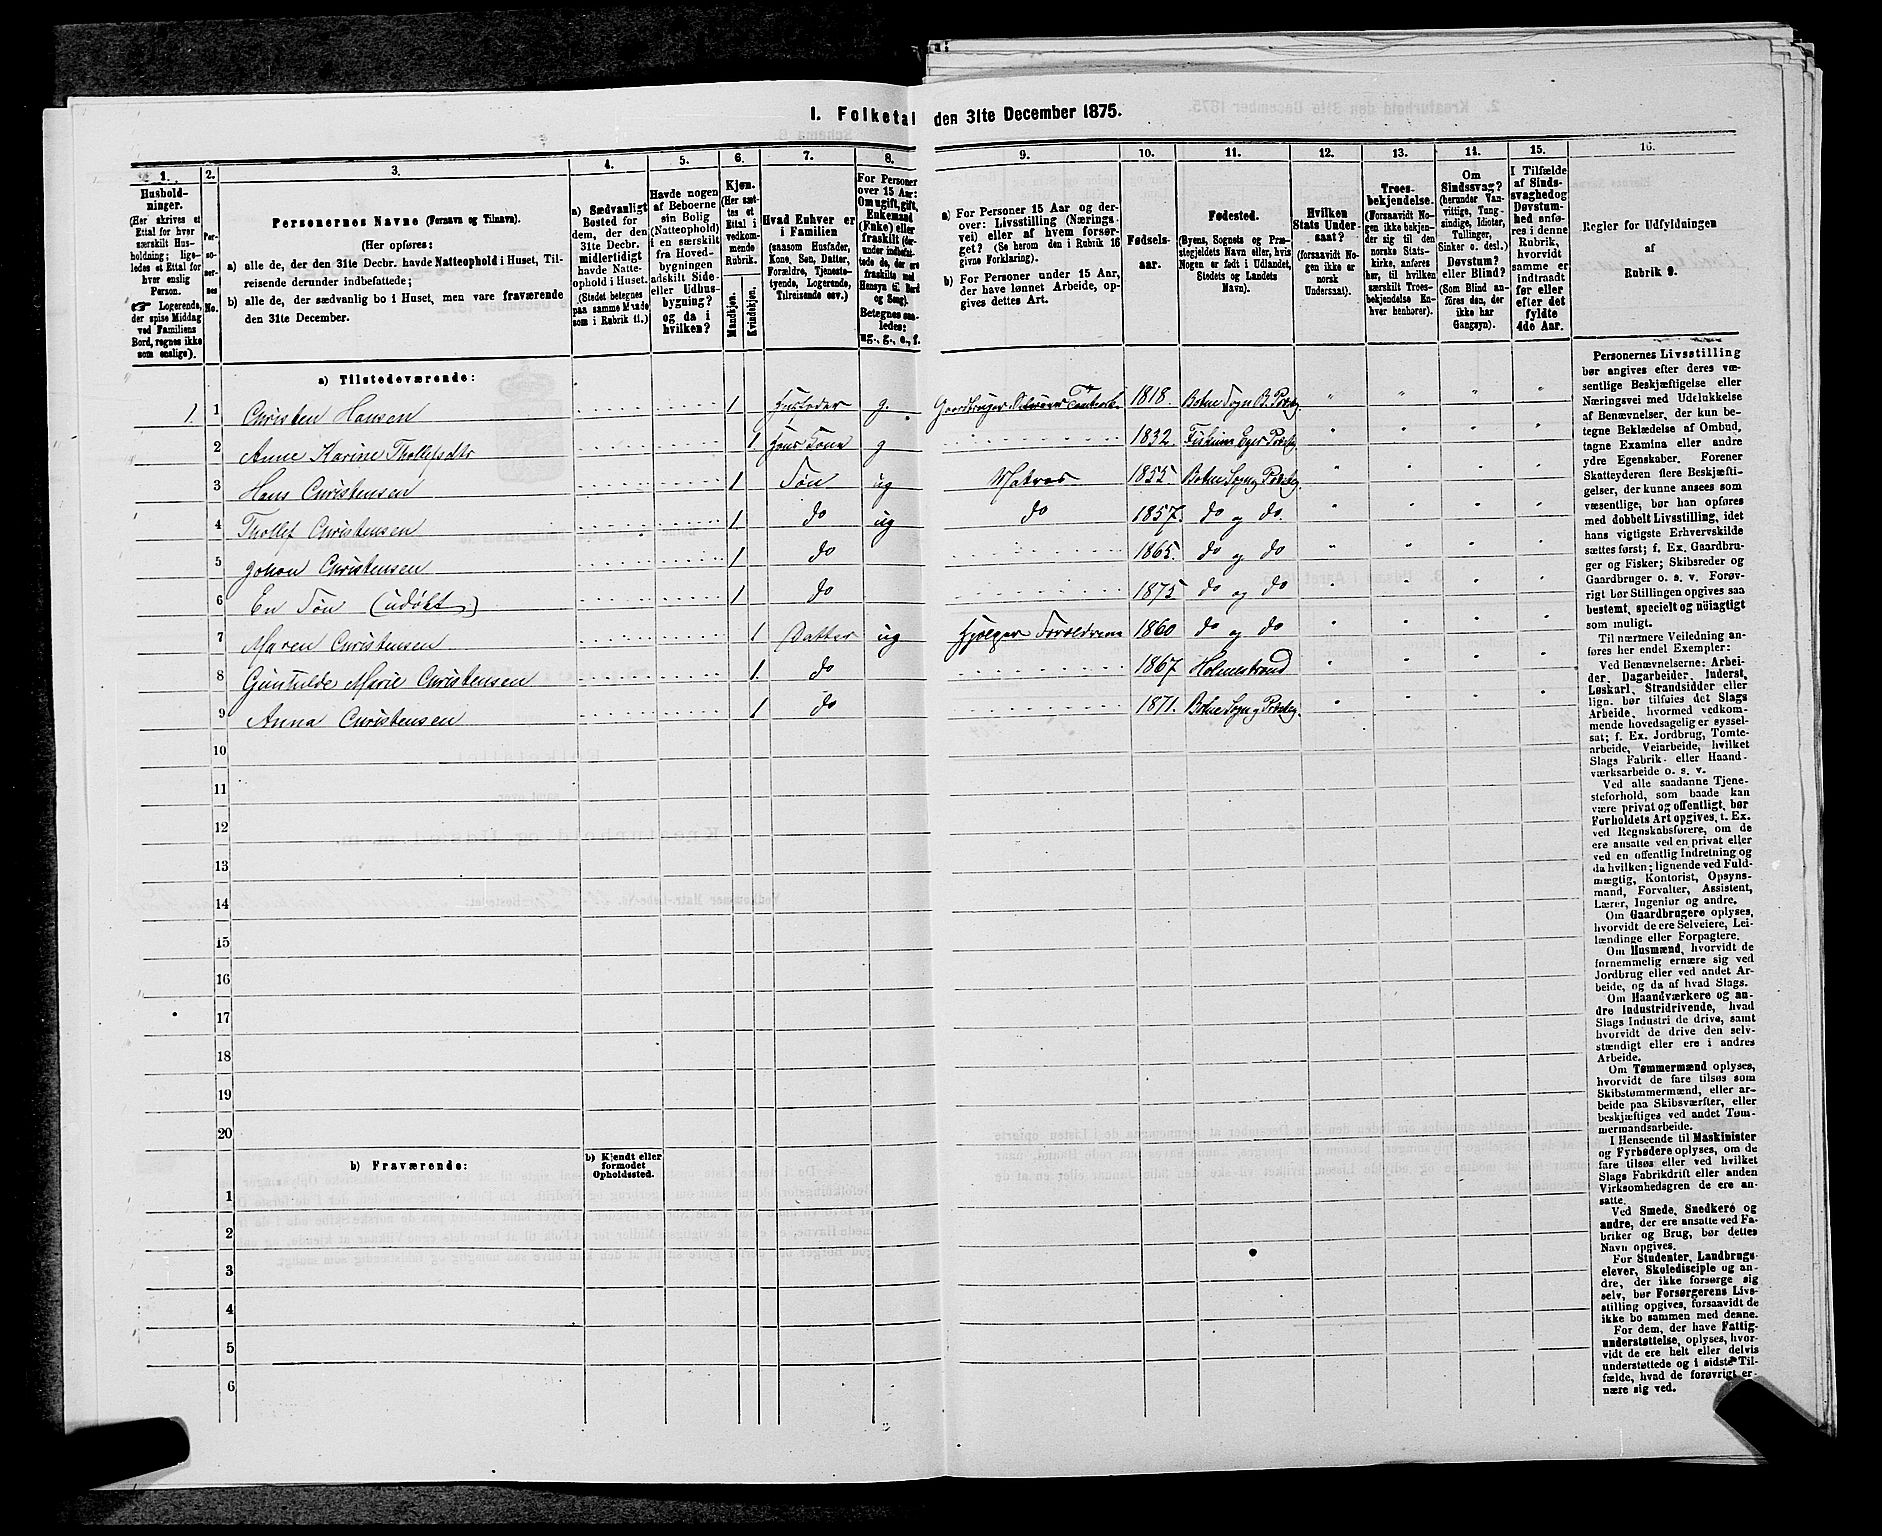 1. Folketal den 31te December 1875.
1. 2. 3. 4. 5. 6. 7. 8. 9. 10. 11. 12. 13. 14. 15. 16.
Hushold-
ninger.
(Her skrives et
Ettal for hver
særskilt Hus-
holdning; lige-
ledes et Ettal for
hver enslig
Person.
Logerende,
der spise Middag
ved Familiens
Bord, regnes ikke
som enslige).
Per-
so-
ner-
nes
No.
Personernes Navne (Fornavn og Tilnavn).
(Her opføres:
a) alle de, der den 31te Decbr. havde Natteophold i Huset, Til-
reisende derunder indbefattede;
b) alle de, der sædvanlig bo i Huset, men vare fraværende
den 31te December.
a) Sædvanligt
Bosted for
dem, der den
31te Decbr.
midlertidigt
havde Natte-
ophold i Huset.
(Stedet betegnes
paa samme Maade
som i Rubrik 11.)
Havde nogen
af Beboerne
sin Bolig
(Natteophold)
i en særskilt
fra Hoved-
bygningen
adskilt Side-
eller Udhus-
bygning?
og da i
hvilken?
Kjøn.
(Her sæt-
tes et
Ettal i
vedkom-
mende
Rubrik.
Mandkjøn.
Kvindekjøn.
Hvad Enhver er
i Familien
(saasom Husfader,
Kone, Søn, Datter,
Forældre, Tjeneste-
tyende, Logerende,
Tilreisende osv.)
For Personer
over 15 Aar:
Om ugift, gift,
Enkemand
(Enke) eller
fraskilt (der-
under indbefat-
tede de, der ere
fraskilte med
Hensyn til Bord
og Seng).
Betegnes saa-
ledes:
ug., g., e., f.
a) For Personer 15 Aar og der-
over: Livsstilling (Nærings-
vei) eller af hvem forsør-
get? (Se herom den i Rubrik 16
givne Forklaring).
b) For Personer under 15 Aar,
der have lønnet Arbeide, op-
gives dettes Art.
Fødsels-
aar.
Fødested.
(Byens, Sognets og Præ-
stegjeldets Navn eller, hvis
Nogen er født i Udlandet,
Stedets og Landets
Navn).
Hvilken
Stats Under-
saat?
(forsaavidt No-
gen ikke er
norsk
Undersaat).
Troes-
bekjendelse.
(Forsaavidt No-
gen ikke bekjen-
der sig til den
norske Stats-
kirke, anføres
her, til hvilken
særskilt Troes-
bekjendelse En-
hver henhører).
Om
Sindssvag?
(herunder Van-
vittige, Tung-
sindige, Idioter,
Tullinger,
Sinker o. desl.)
Døvstum?
eller Blind?
(Som Blind an-
føres den, der
ikke har
Gangsyn).
I Tilfælde
af Sinds-
svaghed og
Døvstum-
hed anfø-
res i denne
Rubrik,
hvorvidt
samme er
indtraadt
før eller
efter det
fyldte
4de Aar.
Regler for Udfyldningen
af
Rubrik 9.
a) Tilstedeværende:
1. 1 Christen Hansen 1 Husfader g. Gaardbruger Selveier 1818. Botne Sogn B. Præstg. " " " "
2 Anne Karine Thollefsdtr 1 Hans Kone g 1832 Fiskum Eger Præstg " " " "
3 Hans Christensen 1 Søn ug Matros 1855 Botne Sogn g Præstg. " " " "
4 Thollef Christensen 1 do ug do 1857. do og do. " " " "
5 Johan Christensen 1 do 1865. do og do " " " "
6 En Søn (udøbt) 1 do 1875 do og do " " " "
7 Maren Christensen 1 Datter ug Hjælper Forældrene 1860 do og do " " " "
8 Gunhilde Marie Christensen 1 do 1867 Holmestrand " " " "
9 Anna Christensen 1 do 1871. Botne Sogn g Præstg. " " " "
10
11
12
13
14
15
16
17
18
19
20
b) Fraværende:
b) Kjendt eller
formodet
Opholdssted.
1
2
3
4
5
6
Personernes Livsstilling
bør angives efter deres væ-
sentlige Beskjæftigelse eller
Næringsvei med Udelukkelse
af Benævnelser, der kun be-
tegne Beklædelse af Ombud,
tagne Examina eller andre
ydre Egenskaber. Forener
Skatteyderen flere Beskjæfti-
gelser, der kunne ansees som
væsentlige, bør han opføres
med dobbelt Livsstilling, idet
hans vigtigste Erhvervskilde
sættes først; f. Ex. Gaardbru-
ger og Fisker; Skibsreder og
Gaardbruger o. s. v. Forøv-
rigt bør Stillingen opgives saa
bestemt, specielt og nöiagtigt
som muligt.
Til nærmere Veiledning an-
føres her endel Exempler:
Ved Benævnelserne: Arbei-
der, Dagarbeider, Inderst,
Løskarl, Strandsidder eller
lign. bør tilføies det Slags
Arbeide, hvormed vedkom-
mende hovedsagelig er syssel-
sat; f. Ex. Jordbrug, Tomte-
arbeide, Veiarbeide, hvilket
Slags Fabrik- eller Haand-
værksarbeide o. s. v.
Ved alle saadanne Tjene-
steforhold, som baade kan
være privat og offentligt, bør
Forholdets Art opgives, t. Ex.
ved Regnskabsførere, om de
ere ansatte ved en privat eller
ved en offentlig Indretning og
da hvilken; lignende ved Fuld-
mægtig, Kontorist, Opsyns-
mand, Forvalter, Assistent,
Lærer, Ingeniør og andre.
Om Gaardbrugere oplyses,
hvorvidt de ere Selveiere, Lei-
lændinge eller Forpagtere.
Om Husmænd, hvorvidt de
fornemmelig ernære sig ved
Jordbrug eller ved andet Ar-
beide, og da af hvad Slags.
Om Haandværkere og an-
dre Industridrivende, hvad
Slags Industri de drive, samt
hvorvidt de drive den selv-
stændigt eller ere i andres
Arbeide.
Om Tømmermænd oplyses,
hvorvidt de fare tilsøs som
Skibstømmermænd, eller ar-
beide paa Skibsværfter, eller
beskjæftiges ved andet Tøm-
mermandsarbeide.
I Henseende til Maskinister
og Fyrbødere oplyses, om de
fare tilsøs eller ved hvilket
Slags Fabrikdrift eller anden
Virksomhedsgren de ere an-
satte.
Ved Smede, Snedkere og
andre, der ere ansatte ved Fa-
briker og Brug, bør dettes
Navn opgives.
For Studenter, Landbrugs-
elever, Skoledisciple og an-
dre, der ikke forsørge sig
selv, bør Forsørgerens Livs-
stilling opgives, forsaavidt de
ikke bo sammen med denne.
For dem, der have Fattig-
understøttelse, oplyses, hvor-
vidt de ere helt eller delvis
understøttede og i sidste Til-
fælde, hvad de forøvrigt er-
nære sig ved.